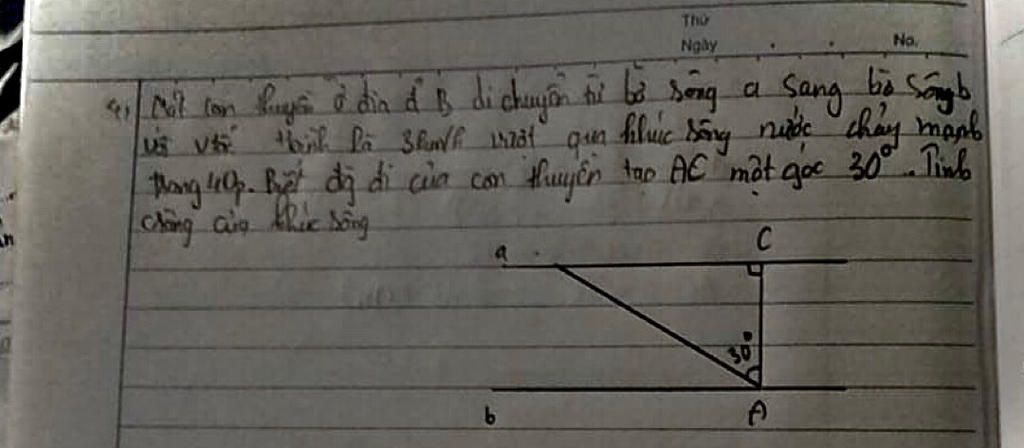 Thứ
Ngày No.
4, Một con thuyền ở địa đ B di chuyển từ bờ sông a sang bờ sông b
với vtố tbình là 3km/h vượt qua khúc sông nước chảy mạnh
trong 40p. Biết đg đi của con thuyền tạo AC một góc 30°. Tính
crộng của khúc sông
a C
30°
b A